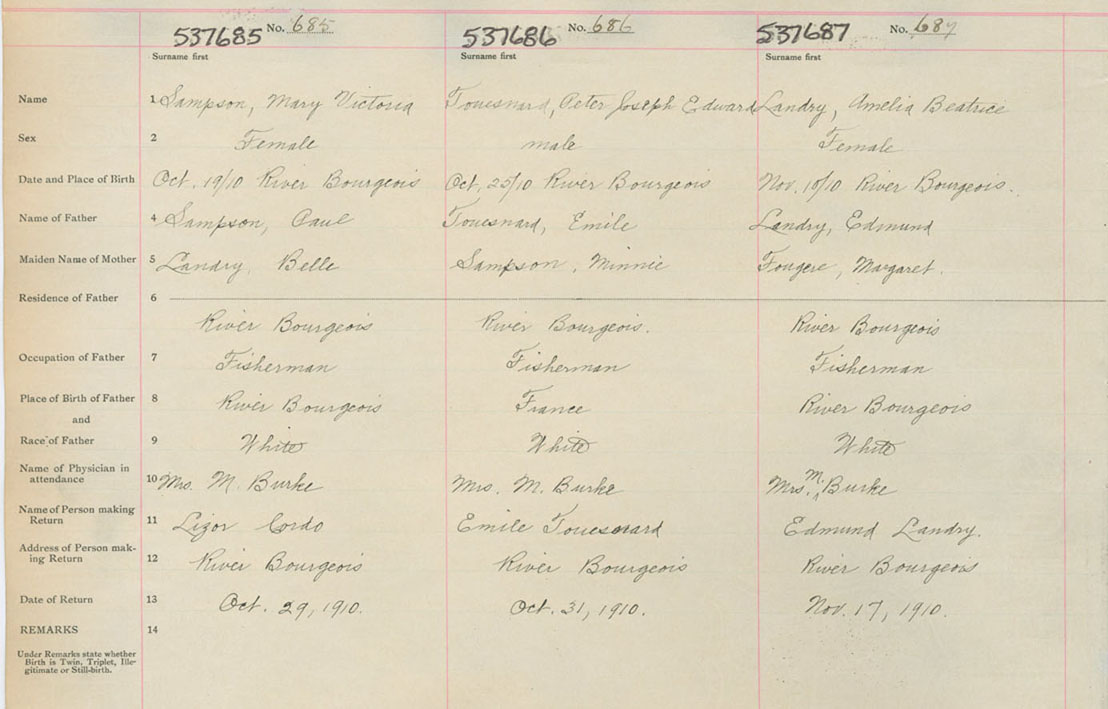 537685 No. 685 537686 No. 686 537687 No. 687
Surname first Surname first Surname first
Name 1 Sampson, Mary Victoria Touesnard, Peter Joseph Edward Landry, Amelia Beatrice
Sex 2 Female male Female
Date and Place of Birth Oct. 19/10 River Bourgeois Oct, 25/10 River Bourgeois Nov. 10/10 River Bourgeois.
Name of Father 4 Sampson, Paul Touesnard, Emile Landry, Edmund
Maiden Name of Mother 5 Landry, Belle Sampson, Minnie Fougere, Margaret.
Residence of Father 6
River Bourgeois River Bourgeois. River Bourgeois
Occupation of Father 7 Fisherman Fisherman Fisherman
Place of Birth of Father 8 River Bourgeois France River Bourgeois
and
Race of Father 9 White White White
Name of Physician in
attendance 10 Mrs. M. Burke Mrs. M. Burke Mrs. M. Burke
Name of Person making
Return 11 Lizor Cordo Emile Touesnard Edmund Landry.
Address of Person mak-
ing Return 12 River Bourgeois River Bourgeois River Bourgeois
Date of Return 13 Oct. 29, 1910. Oct. 31, 1910. Nov. 17, 1910.
REMARKS 14
Under Remarks state whether
Birth is Twin, Triplet, Ille-
gitimate or Still-birth.